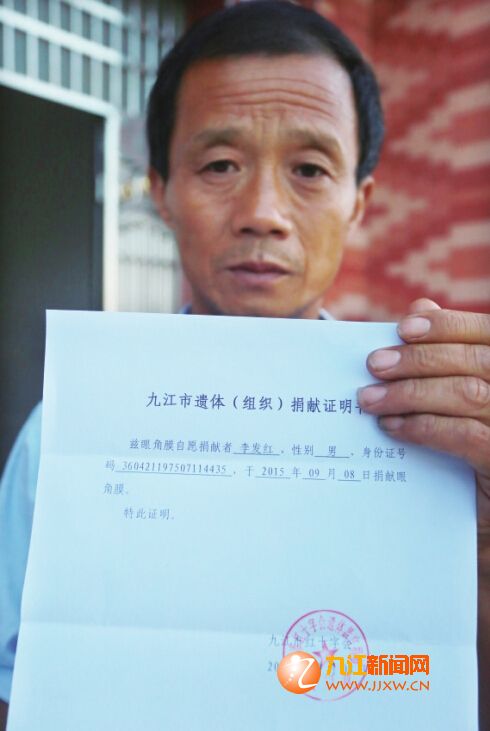 九江市遗体（组织）捐献证明书
兹眼角膜自愿捐献者 李发红 ，性别 男 ，身份证号
码 360421197507114435 ，于 2015 年 09 月 08 日捐献眼
角膜。
特此证明。
九江市红十字会
九江新闻网
WWW.JJXW.CN